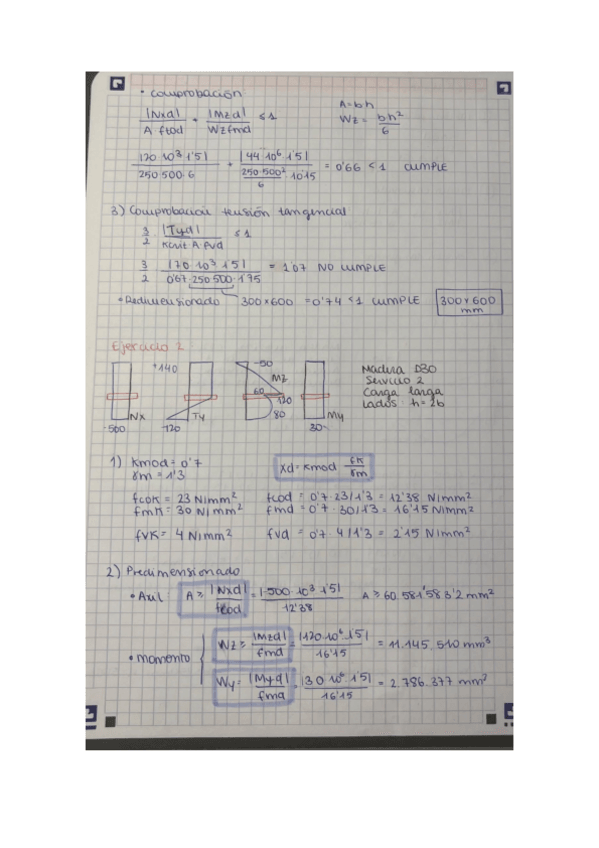 • Comprobación
|Nxd| / A ftod + |Mzd| / Wzfmd ≤ 1    A = bh
Wz = bh² / 6
|120·10³·1'5| / 250·500·6 + |44·10⁶·1'5| / (250·500² / 6 · 10'15) = 0'66 < 1 CUMPLE
3) Comprobación tensión tangencial
3/2 |Tyd| / Kcrit A fvd ≤ 1
3/2 |70·10³·1'5| / 0'67·250·500·1'75 = 1'07 NO CUMPLE
• Redimensionado 300×600 = 0'74 < 1 CUMPLE 300×600 mm
Ejercicio 2
+140 -50 Mz 60 120 80
-500 Nx -120 Ty 30 My
Madera D30
Servicio 2
Carga larga
Lados h=2b
1) Kmod = 0'7    Xd = Kmod fK / γm
γm = 1'3
fcok = 23 N/mm²    fcod = 0'7·23/1'3 = 12'38 N/mm²
fmk = 30 N/mm²    fmd = 0'7·30/1'3 = 16'15 N/mm²
fvk = 4 N/mm²    fvd = 0'7·4/1'3 = 2'15 N/mm²
2) Predimensionado
• Axil A ≥ |Nxd| / fcod = |-500·10³·1'5| / 12'38    A ≥ 60.581'583'2 mm²
• Momento Wz ≥ |Mzd| / fmd = |120·10⁶·1'5| / 16'15 = 11.145.510 mm³
Wy = |Myd| / fmd = |30·10⁶·1'5| / 16'15 = 2.786.377 mm³